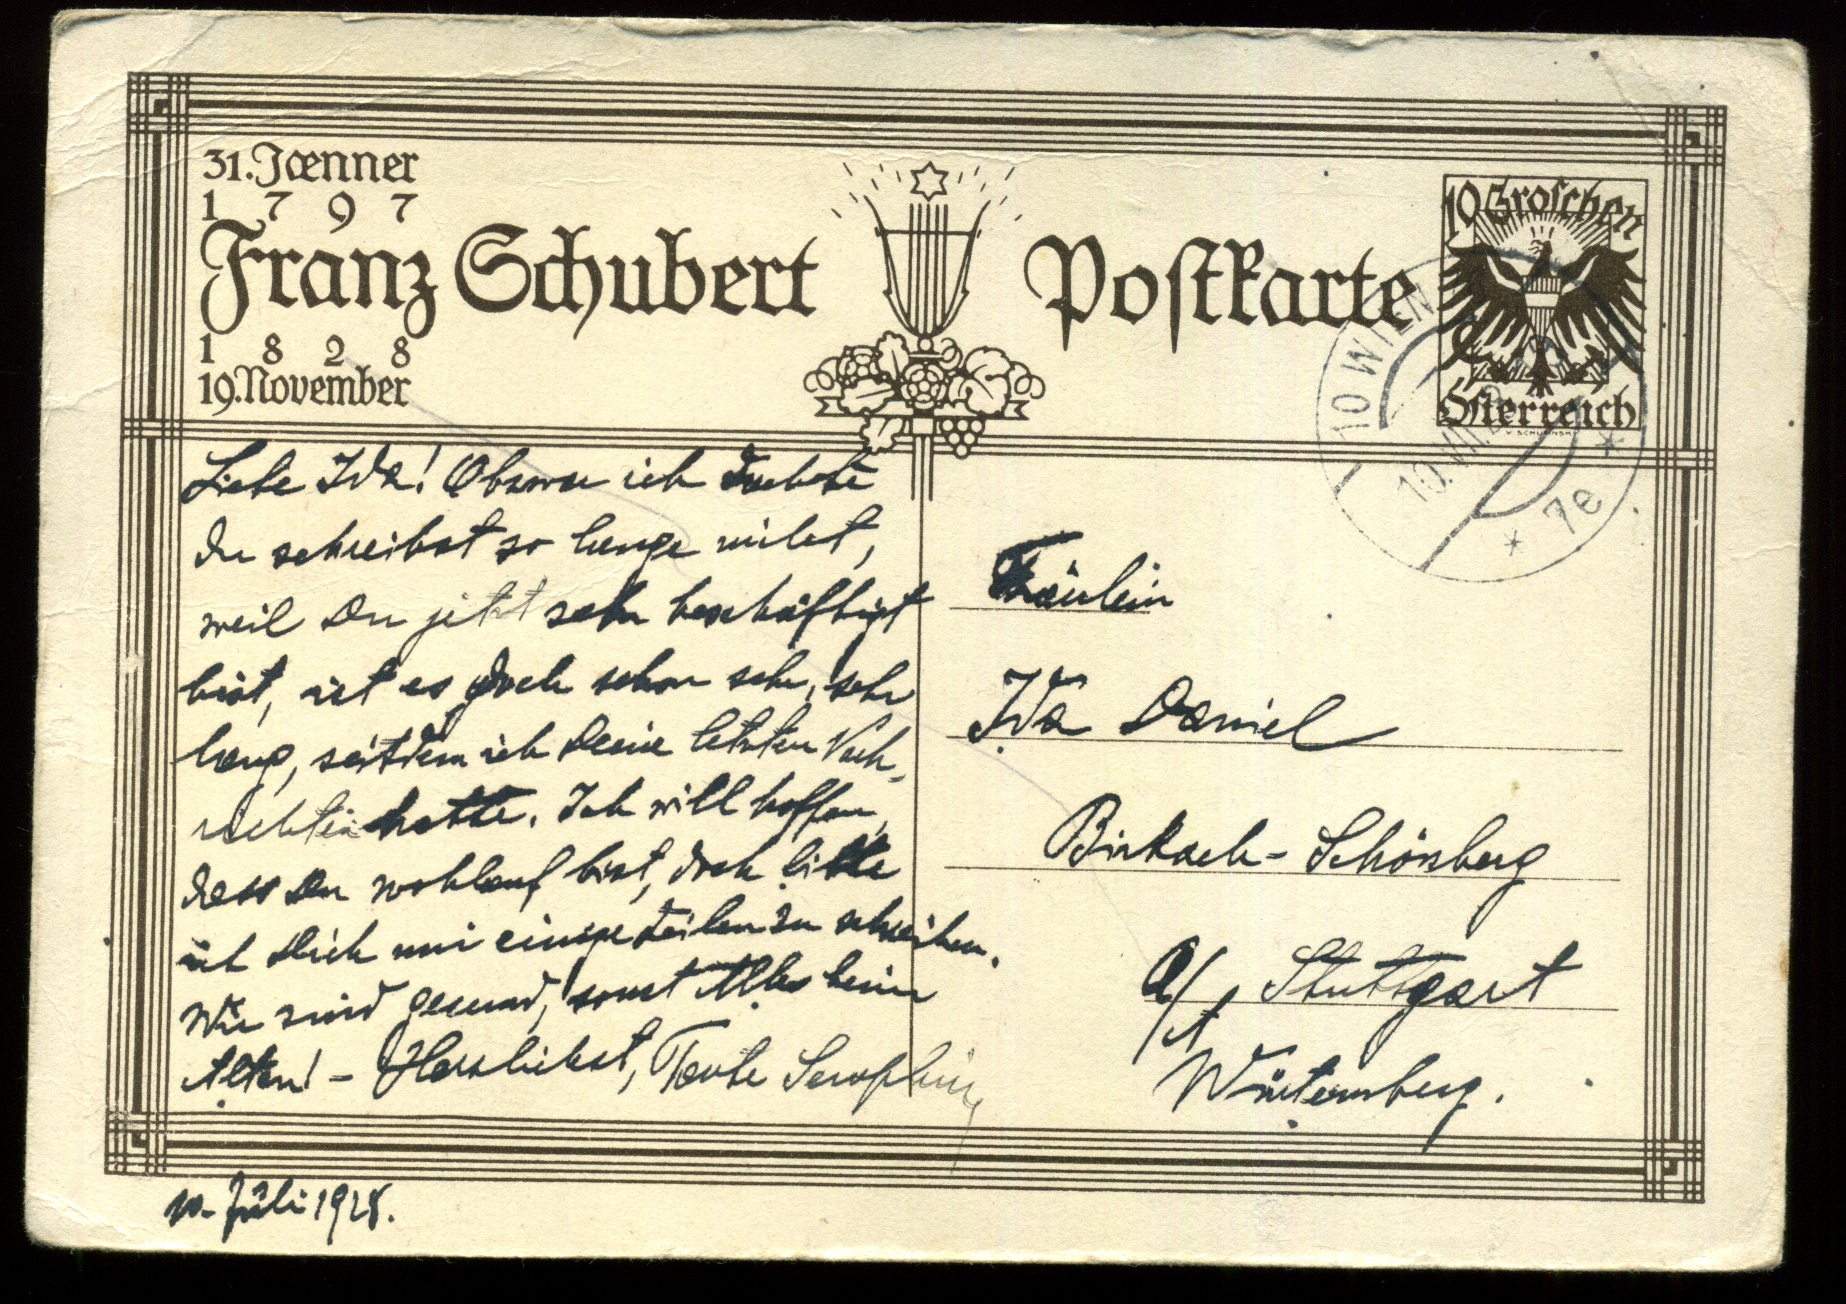 31. Jænner
1797
Franz Schubert
1828
19. November
Postkarte
10 Groschen
Österreich
10 WIEN
10.VII.
* 7e *
Liebe Ida! Obzwar ich dachte
Du schreibst so lange nicht,
weil Du jetzt sehr beschäftigt
bist, ist es doch schon sehr, sehr
lang, seitdem ich Deine letzten Nach-
richten hatte. Ich will hoffen,
dass Du wohlauf bist, doch bitte
ich Dich mir einige Zeilen zu schreiben.
Wir sind gesund, sonst Alles beim
Alten! – Herzlichst, Tante Seraphine
10. Juli 1928.
Fräulein
Ida Daniel
Birkach-Schönberg
a/ Stuttgart
Würtemberg.